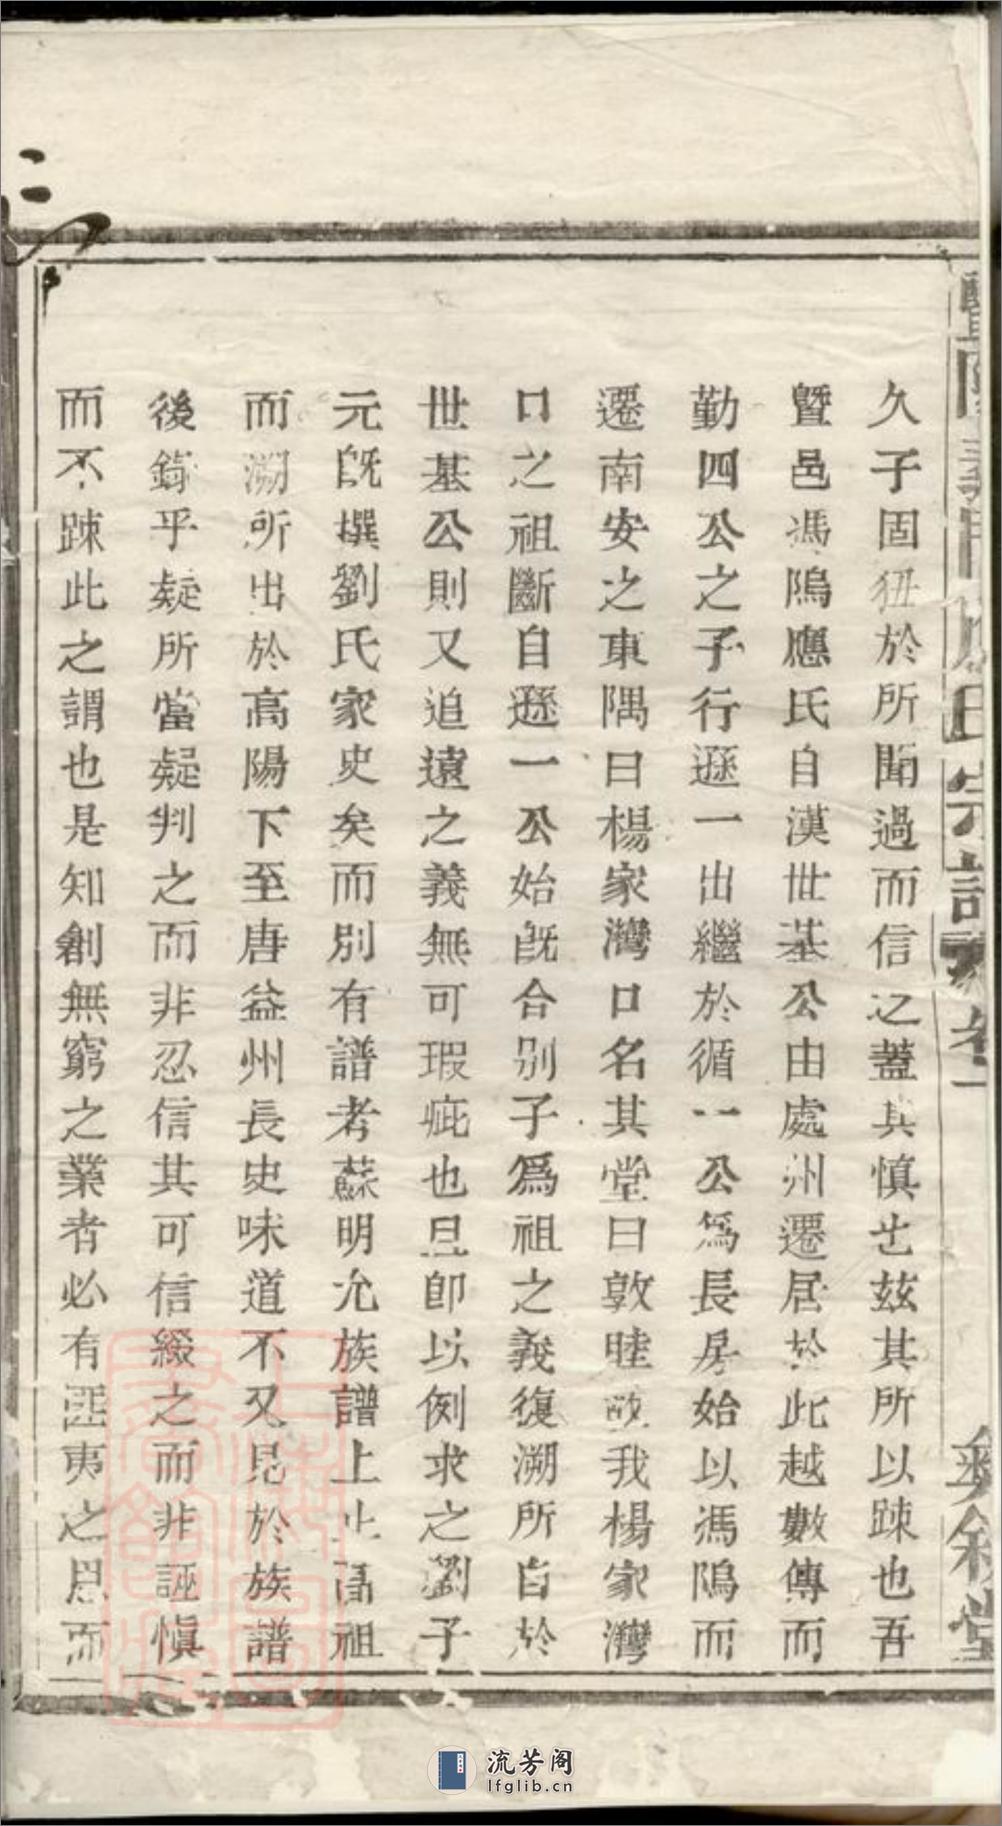 久子固狃於所聞過而信之蓋其慎也茲其所以踈也吾
暨邑馮隖應氏自漢世基公由處州遷居於此越數傳而
勤四公之子行遜一出繼於循一公爲長房始以馮隖而
遷南安之東隅曰楊家灣口名其堂曰敦睦故我楊家灣
口之祖斷自遜一公始旣合別子爲祖之義復溯所自於
世基公則又追遠之義無可瑕疵也且卽以例求之劉子
元旣撰劉氏家史矣而別有譜考蘇明允族譜上止高祖
而溯所出於高陽下至唐益州長史味道不又見於族譜
後錞乎疑所當疑判之而非忍信其可信綴之而非誣愼
而不踈此之謂也是知創無窮之業者必有匪夷之思而
氏宗譜 卷一
敘堂
上海圖書館藏
流芳阁
lfglib.cn